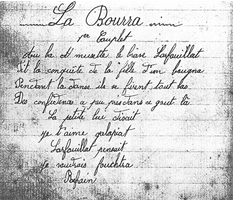 La Bourra
1er Couplet
Au bal musette le biase Larfouillat
fit la conquête de la fille d'un bougna
Pendant la danse ils se firent tout bas
Des confidences à peu près dans ce goût là
La petite lui disait
je t'aime galapiat
Larfouillat pensait
je voudrais fouchtra
Refrain